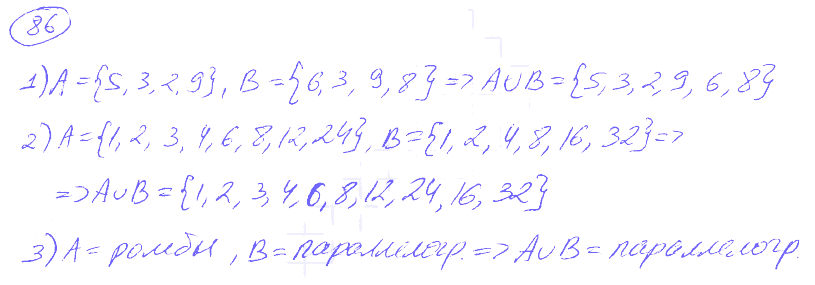 86
1) A = {5, 3, 2, 9}, B = {6, 3, 9, 8} => A∪B = {5, 3, 2, 9, 6, 8}
2) A = {1, 2, 3, 4, 6, 8, 12, 24}, B = {1, 2, 4, 8, 16, 32} =>
=> A∪B = {1, 2, 3, 4, 6, 8, 12, 24, 16, 32}
3) A = ромбы, B = параллелогр. => A∪B = параллелогр.